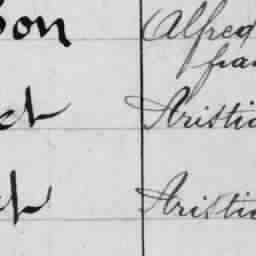 son Alfred
fra
et Aristi
et Aristi